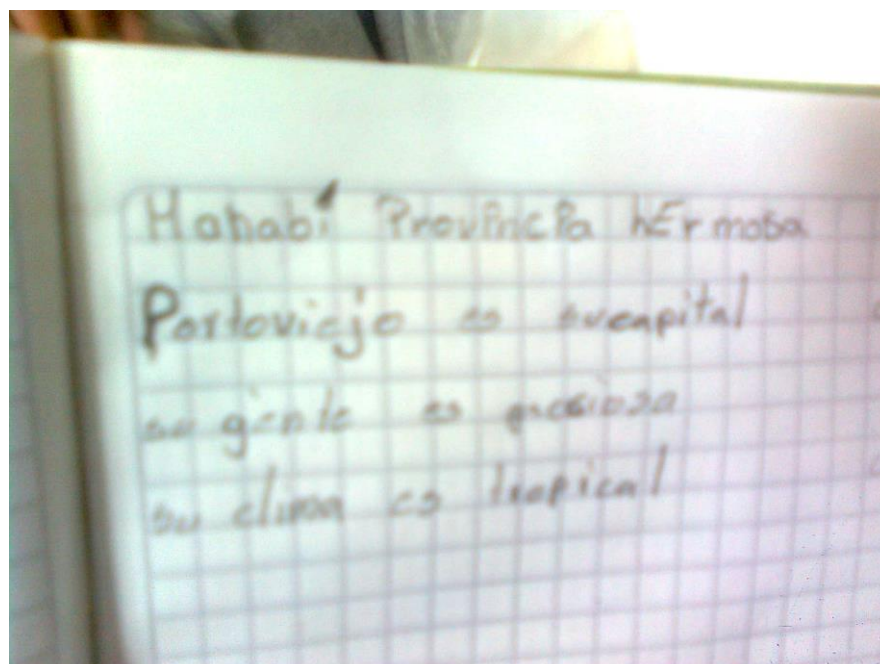 Manabí Provincia hErmosa
Portoviejo es sucapital
su gente es graciosa
su clima es tropical